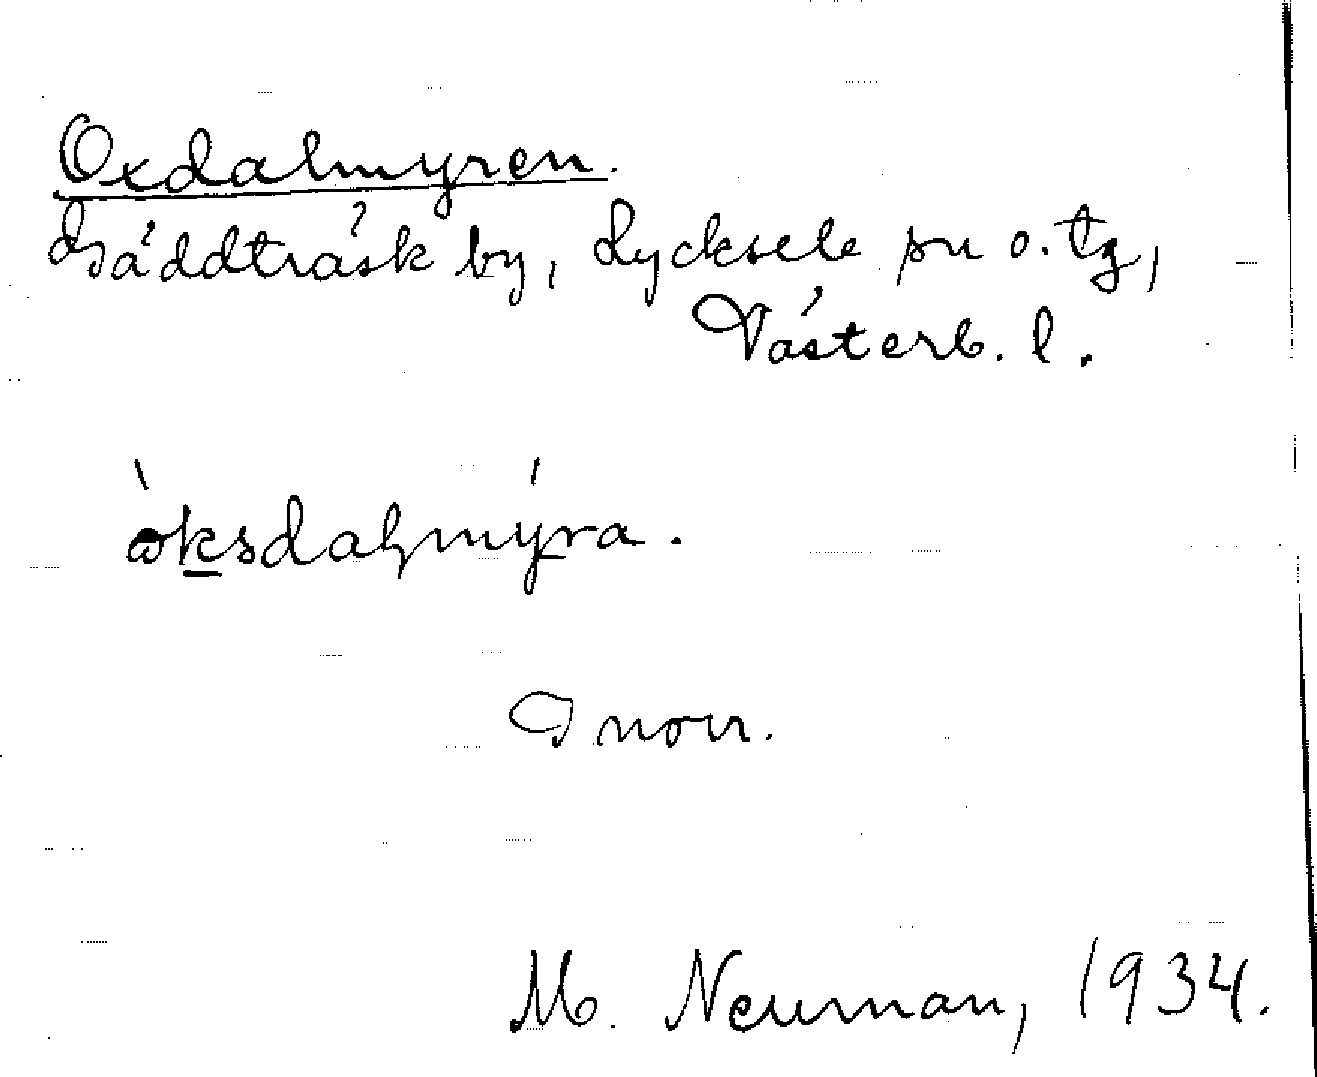 Oxdalmyren.
Bäddträsk by, Lycksele sn o. tg,
Västerb. l.
òksdaḷmýra.
I norr.
M. Neuman, 1934.